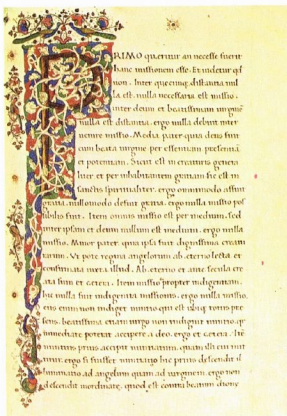 PRIMO queritur an necesse fuerit
hanc missionem esse. Et videtur qđ
non. Inter quecunq; distantia nul
la est. nulla necessaria est missio.
inter deum et beatissimam virginē
nulla est distantia. ergo nulla debuit inter
uenire missio. Media pater quia deus fuit
cum beata virgine per essentiam presentiā
et potentiam. Sicut est in creaturis genera
liter et per inhabitantem gratiam sic est in
sanctis spiritualiter. ergo omnimodo affuit
gratia. nullomodo defuit gratia. ergo nulla missio pos
sibilis fuit. Item omnis missio est per medium. sed
inter ipsam et deum nullum est medium. ergo nulla
missio. Minor patet quia ipsa fuit dignissima crea
turarum. Ut pote regina angelorum ab eterno electa. et
missio propter indigentiam.
hic nulla fuit indigentia missionis. ergo nulla missio.
enim non indiget qui est ubiq; totus pre
sens. beatissima etiam uirgo non indiguit nuntio. q
immediate poterat accipere a deo. ergo et cetera.
ergo si fuisset nuntiatio hic primo descendit il
luminatio ad angelum quam ad uirginem. ergo non
descendit inordinate. quod est contra beatum diony